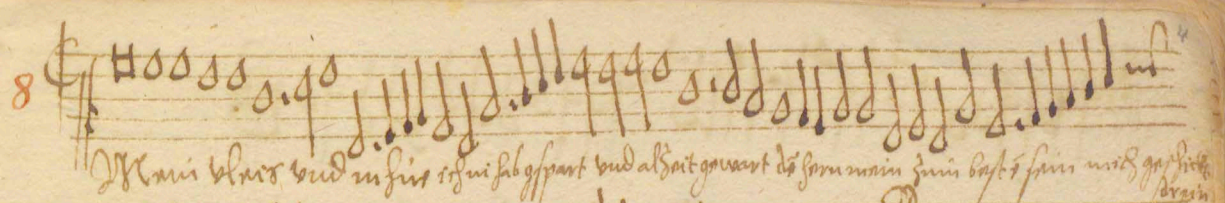 8
Mein vleis vnd mhüe ich nie hab gspart vnd alzeit gewart dē hern mein zum bestē sein mich geschickt
drein